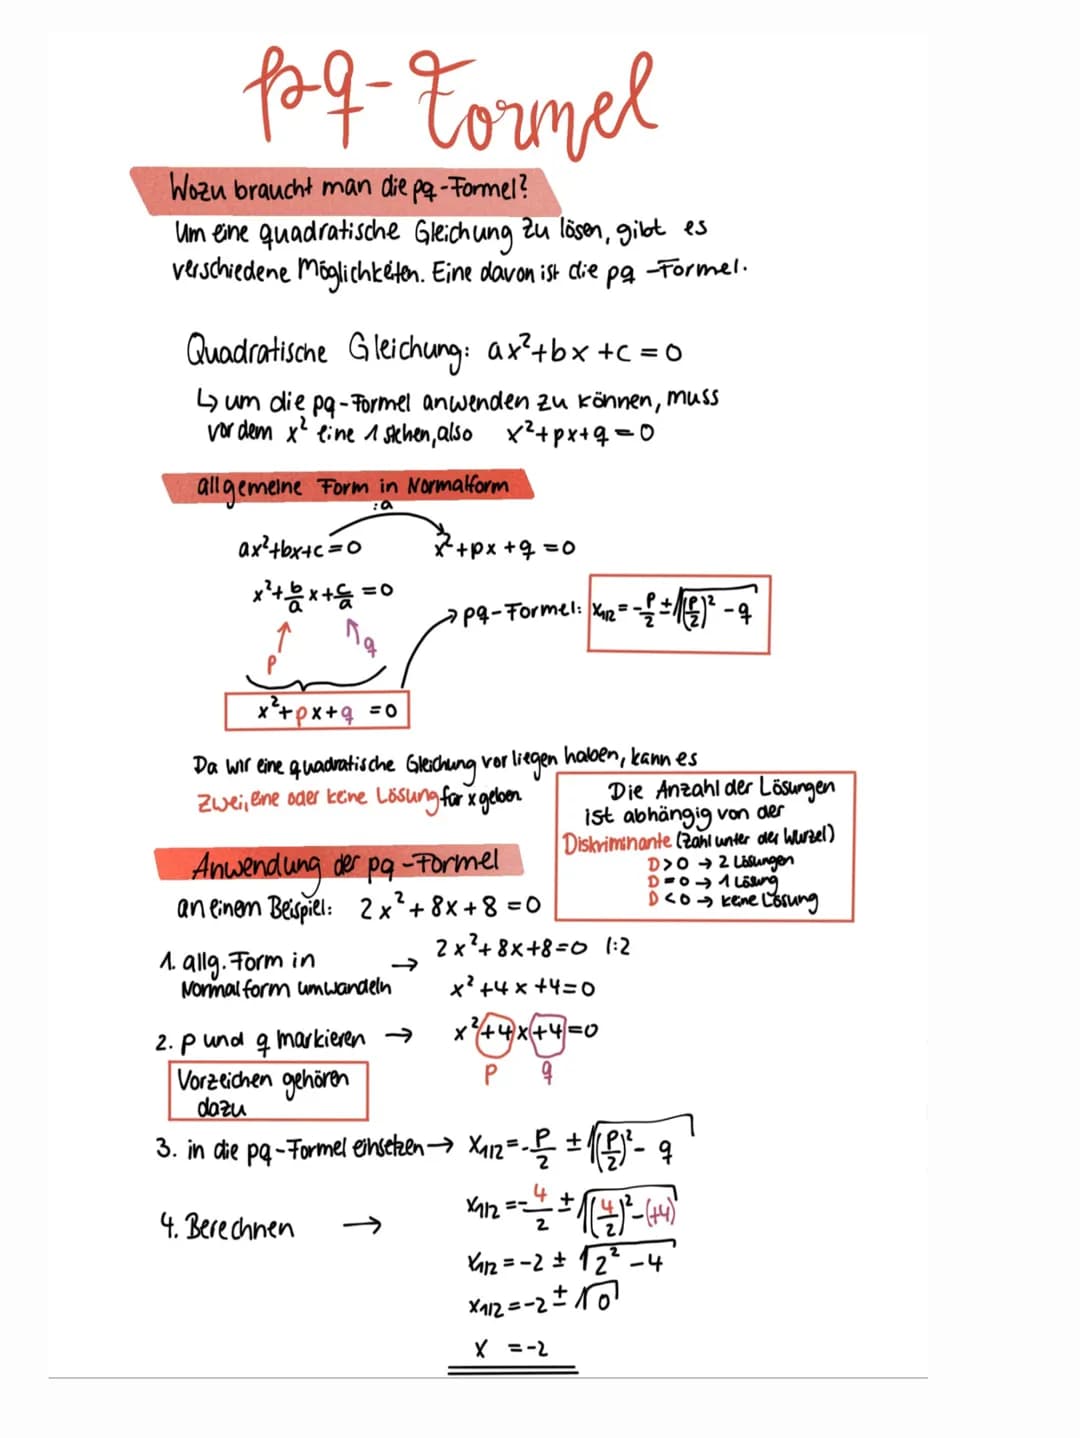 pq-Formel
Wozu braucht man die pq-Formel?
Um eine quadratische Gleichung zu lösen, gibt es
verschiedene Möglichkeiten. Eine davon ist die pq-Formel.
Quadratische Gleichung: ax²+bx+c=0
↳ um die pq-Formel anwenden zu können, muss
vor dem x² eine 1 stehen, also x²+px+q=0
allgemeine Form in Normalform
:a
ax²+bx+c=0 x²+px+q=0
x²+b/a x+c/a=0
→pq-Formel: x1/2=-p/2±√((p/2)²-q)
p q
x²+px+q=0
Da wir eine quadratische Gleichung vor liegen haben, kann es
Zwei, eine oder keine Lösung für x geben
Die Anzahl der Lösungen
ist abhängig von der
Diskriminante (Zahl unter der Wurzel)
D>0 → 2 Lösungen
D=0 → 1 Lösung
D<0 → keine Lösung
Anwendung der pq-Formel
an einem Beispiel: 2x²+8x+8=0
1. allg. Form in → 2x²+8x+8=0 |:2
Normalform umwandeln x²+4x+4=0
2. p und q markieren → x²+4x+4=0
p q
Vorzeichen gehören
dazu
3. in die pq-Formel einsetzen → x1/2=-p/2±√((p/2)²-q)
4. Berechnen → x1/2=-4/2±√((4/2)²-(+4))
x1/2=-2±√(2²-4)
x1/2=-2±√0
x =-2